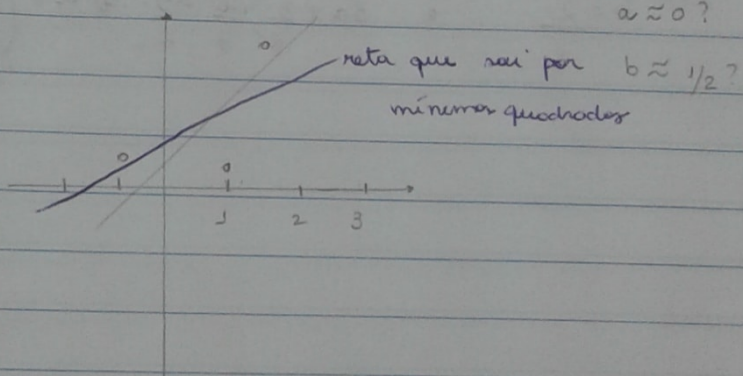 a ≈ 0 ?
reta que sai por b ≈ 1/2 ?
mínimos quadrados
1 2 3